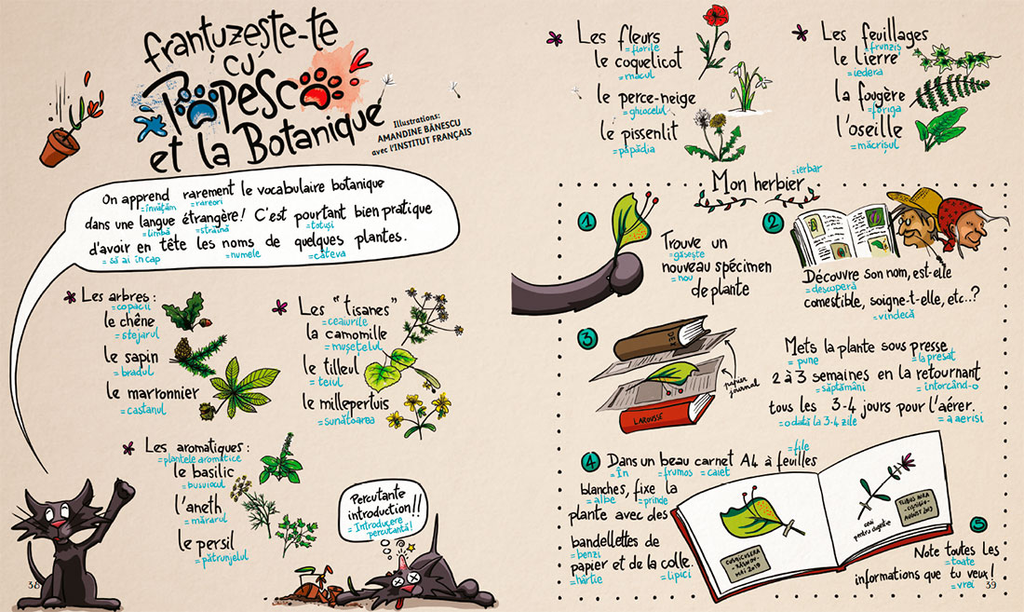 franțuzește-te
cu
Popesco
et la Botanique
Illustrations:
AMANDINE BĂNESCU
avec l'INSTITUT FRANÇAIS
On apprend rarement le vocabulaire botanique
=învățăm =rareori
dans une langue étrangère! C'est pourtant bien pratique
=limbă =străină =totuși
d'avoir en tête les noms de quelques plantes.
=să ai în cap =numele =câteva
Les arbres:
=copacii
le chêne
=stejarul
le sapin
=bradul
le marronnier
=castanul
Les "tisanes"
=ceaiurile
la camomille
=mușețelul
le tilleul
=teiul
le millepertuis
=sunătoarea
Les aromatiques:
=plantele aromatice
le basilic
=busuiocul
l'aneth
=mărarul
le persil
=pătrunjelul
Percutante
introduction!!
=Introducere
percutantă!
38
Les fleurs
=florile
le coquelicot
=macul
le perce-neige
=ghiocelul
le pissenlit
=păpădia
Les feuillages
=frunziș
le lierre
=iedera
la fougère
=feriga
l'oseille
=măcrișul
Mon herbier
=ierbar
1
Trouve un
=găsește
nouveau spécimen
=nou
de plante
2
Découvre son nom, est-elle
=descoperă
comestible, soigne-t-elle, etc..?
=vindecă
3
LAROUSSE
papier
journal
Mets la plante sous presse
=pune =la presat
2 à 3 semaines en la retournant
=săptămâni =întorcând-o
tous les 3-4 jours pour l'aérer.
=o dată la 3-4 zile =a aerisi
4
Dans un beau carnet A4 à feuilles
=În =frumos =caiet =file
blanches, fixe la
=albe =prinde
plante avec des
bandellettes de
=benzi
papier et de la colle.
=hârtie =lipici
MAI 2019
AUGUST 2019
5
Note toutes les
=toate
informations que tu veux!
=vrei
39